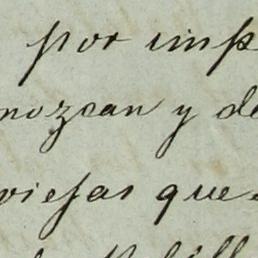 por imp
nozcan y de
viejas que